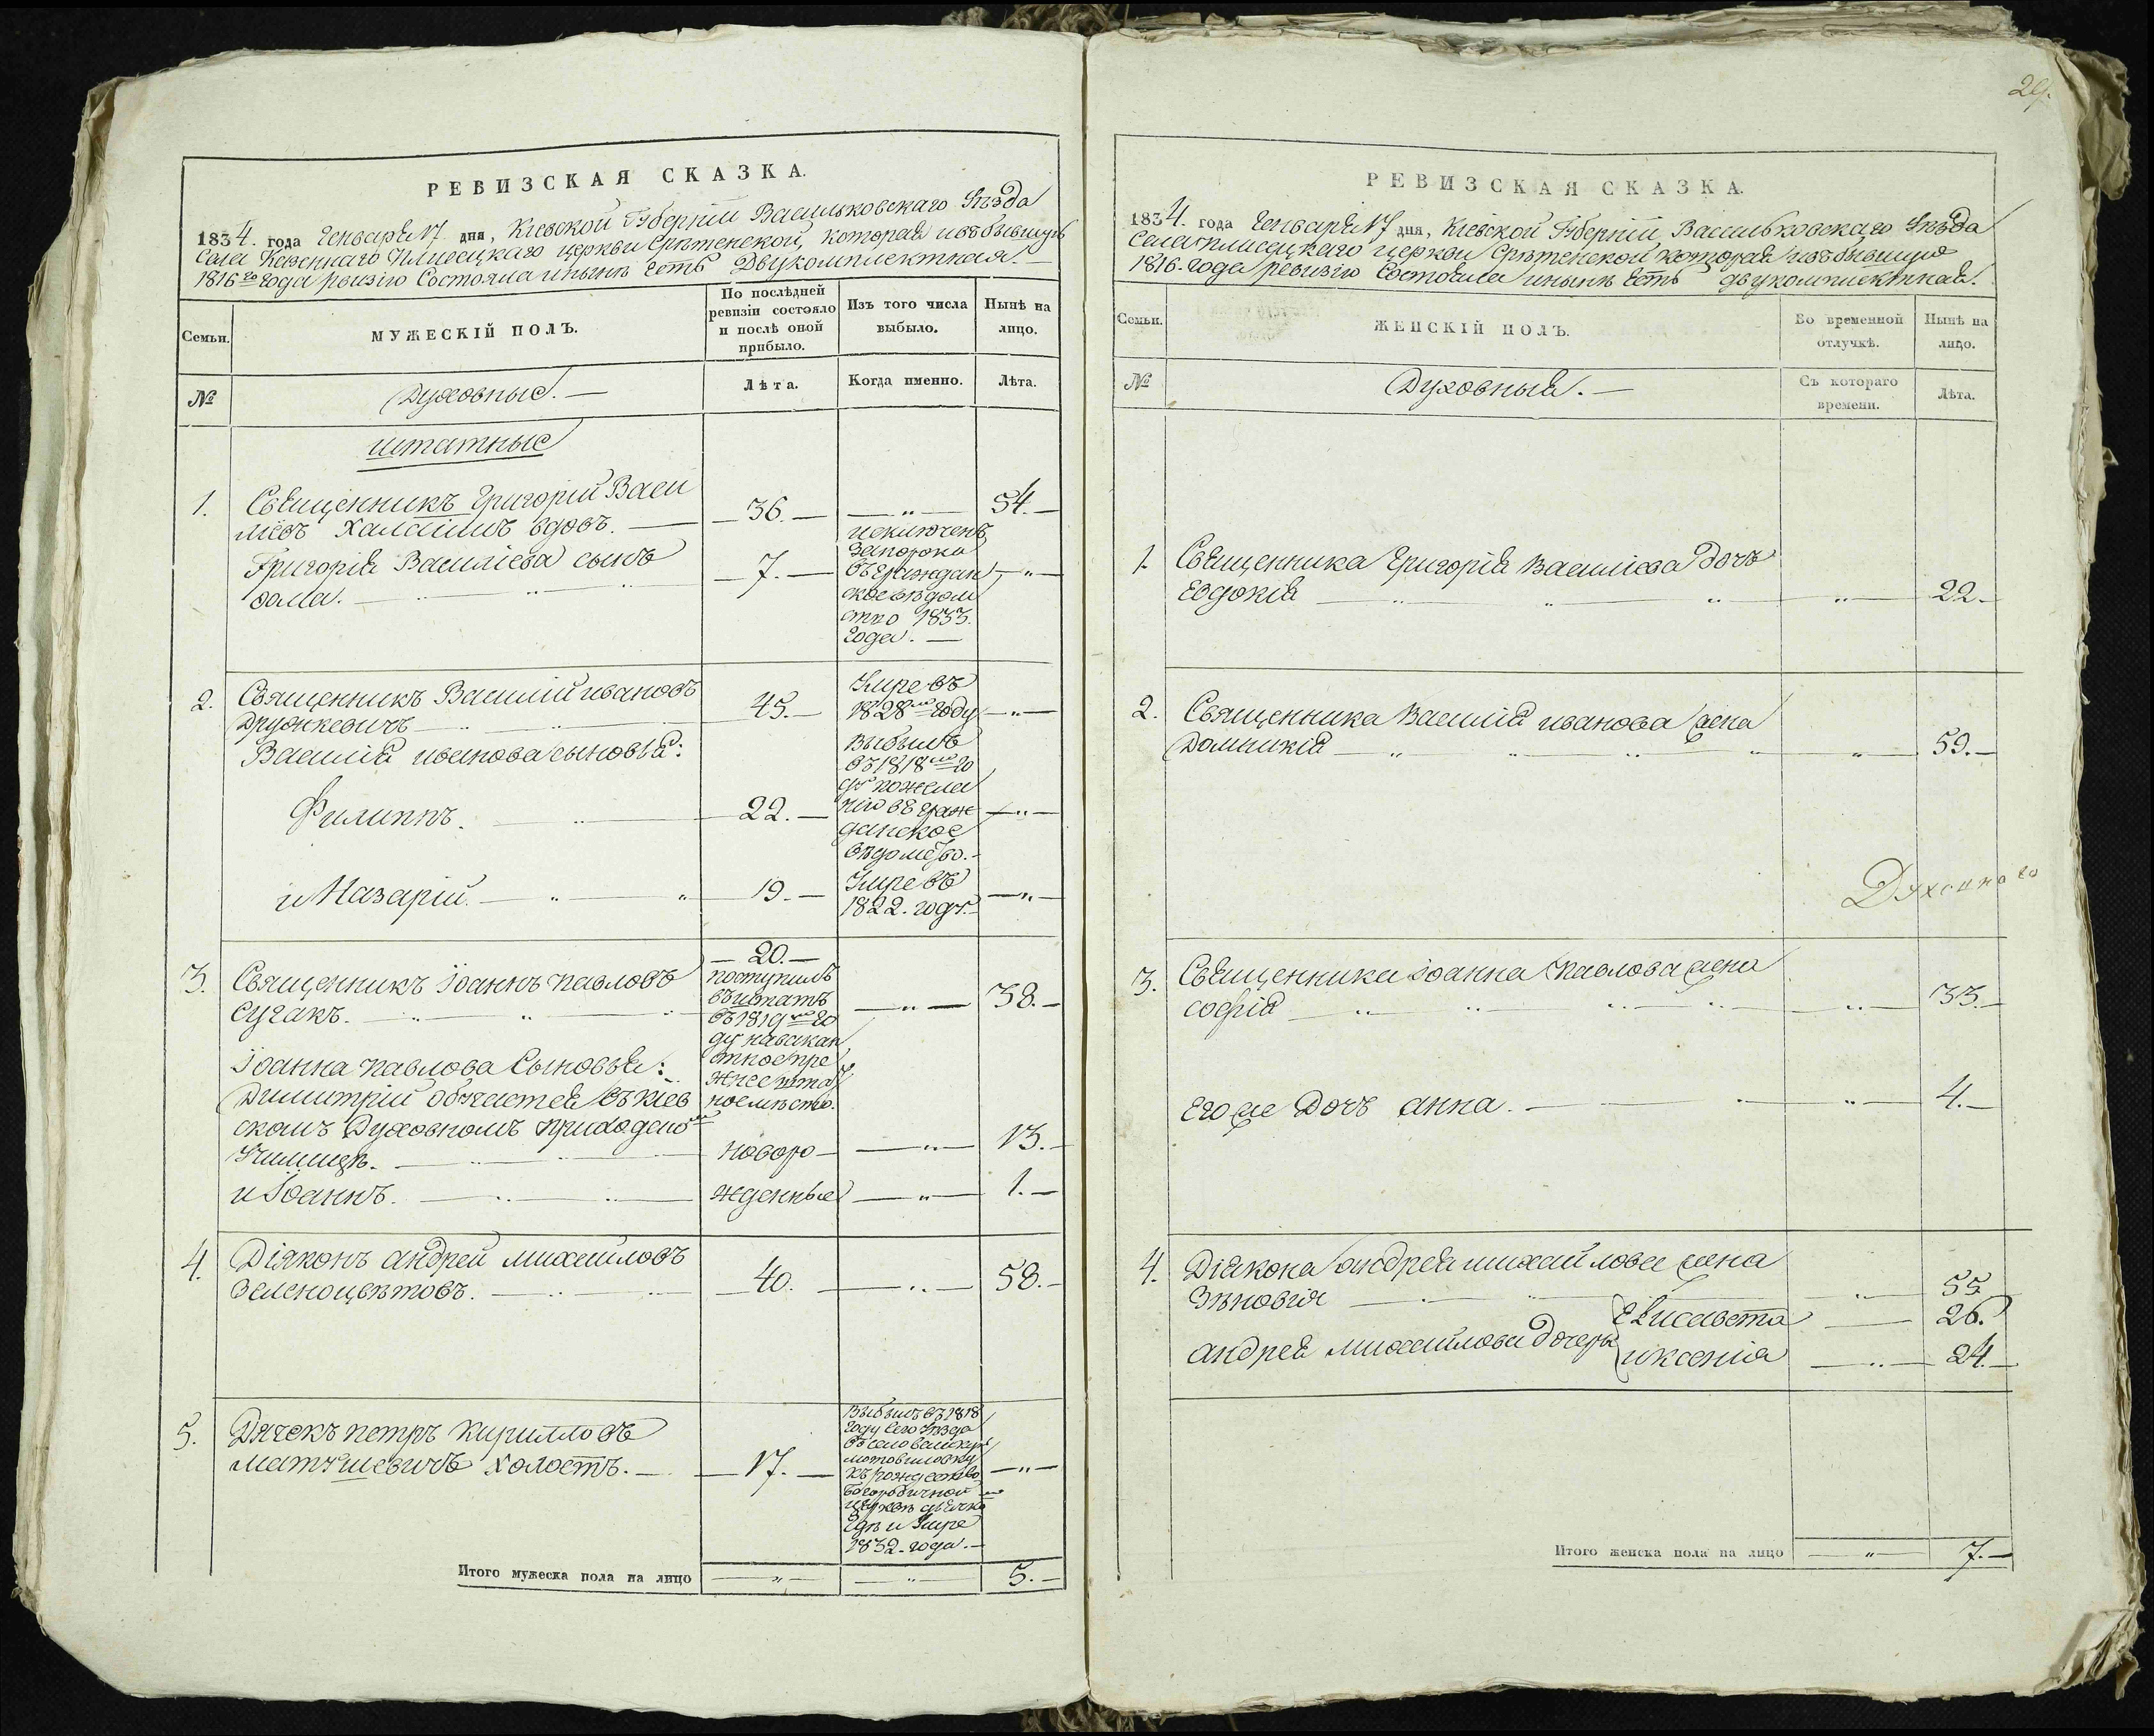 РЕВИЗСКАЯ СКАЗКА.
1834. года Генваря 17 дня, Кіевской Губерніи Васильковскаго Уѣзда
Села Казеннаго Плисецкаго церкви Срѣтенской, которая и въ бывшую
1816го года ревизію Состояла и нынѣ Есть Двукомплектная.
Семьи.
МУЖЕСКІЙ ПОЛЪ.
По послѣдней
ревизіи состояло
и послѣ оной
прибыло.
Изъ того числа
выбыло.
Нынѣ на
лицо.
№
Духовные.
Лѣта.
Когда именно.
Лѣта.
штатные
1. Священникъ Григорій Васи
лієвъ вдовъ. 36. „ 54.
Григорія Василієва сынъ
7. „
исключенъ
за порока
въ граждан
ское вѣдом
ство 1833.
года.
2. Священникъ Василій ивановъ
Дружкевичъ 45. „
Умре въ
1828мъ году
Василія иванова сыновья:
Филиппъ. 22. „
выбылъ
въ 1818мъ го
ду по жела
нію въ граж
данское
вѣдомство.
и Назарій. 19. „
Умре въ
1822. году.
3. Священникъ Іоаннъ павловъ
Сугакъ. „ 38.
20.
поступилъ
въ штатъ
въ 1819мъ го
ду на вакан
тное пре
жнее штат
ное мѣсто.
Іоанна павлова Сыновья:
Димитрій обучается въ кіев
скомъ Духовномъ приходскомъ
Училищѣ. новоро „ 13.
и Іоаннъ. жденные „ 1.
4. Діяконъ андрей михаиловъ
Зеленоцвѣтовъ. 40. „ 58.
5. Дячекъ петръ Кирилловъ
матушевичъ холостъ. 17. „
Выбылъ въ 1818
году Сего Уѣзда
въ село великую
мотовиловку
къ рождество
богородичной
церквѣ дячкомъ
гдѣ и Умре
1832. года.
Итого мужеска пола на лицо „ „ 5.
29.
РЕВИЗСКАЯ СКАЗКА.
1834. года Генваря 17 дня, Кіевской Губерніи Васильковскаго Уѣзда
Села плисецкаго церкви Срѣтенской которая и въ бывшую
1816. года ревизію Состояла и нынѣ Есть двукомплектная.
Семьи.
ЖЕНСКІЙ ПОЛЪ.
Во временной
отлучкѣ.
Нынѣ на
лицо.
№
Духовныя.
Съ котораго
времени.
Лѣта.
1. Священника Григорія василієва дочь
Евдокія „ 22.
2. Священника василія иванова жена
Домникія „ 59.
Духовнаго
3. Священника іоанна павлова жена
софія „ 33.
Егоже Дочь анна. „ 4.
4. Діякона андрея михайлова жена
Зѣновія „ 55.
Елисавета 26.
андрея михайлова дочеры
и ксенія „ 24.
Итого женска пола на лицо „ 7.